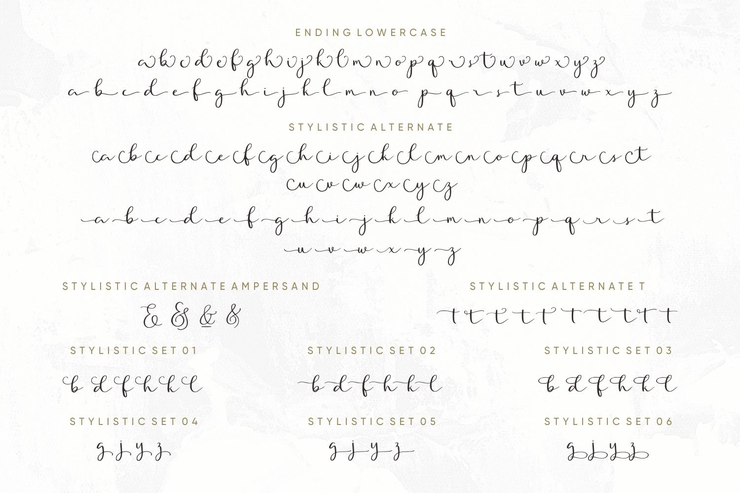 ENDING LOWERCASE
a b c d e f g h i j k l m n o p q r s t u v w x y z
a b c d e f g h i j k l m n o p q r s t u v w x y z
STYLISTIC ALTERNATE
a b c d e f g h i j k l m n o p q r s t
u v w x y z
a b c d e f g h i j k l m n o p q r s t
u v w x y z
STYLISTIC ALTERNATE AMPERSAND
& & & &
STYLISTIC ALTERNATE T
t t t t t t t t t t
STYLISTIC SET 01
b d f h k l
STYLISTIC SET 02
b d f h k l
STYLISTIC SET 03
b d f h k l
STYLISTIC SET 04
g j y z
STYLISTIC SET 05
g j y z
STYLISTIC SET 06
g j y z